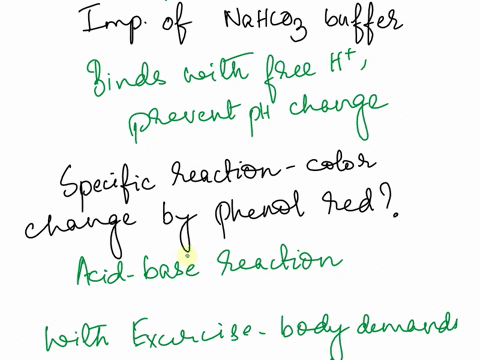 Imp. of NaHCO3 buffer
Binds with free H+,
prevent pH change
Specific reaction - color
change by Phenol red?
Acid-base reaction
with Excercise - body demands